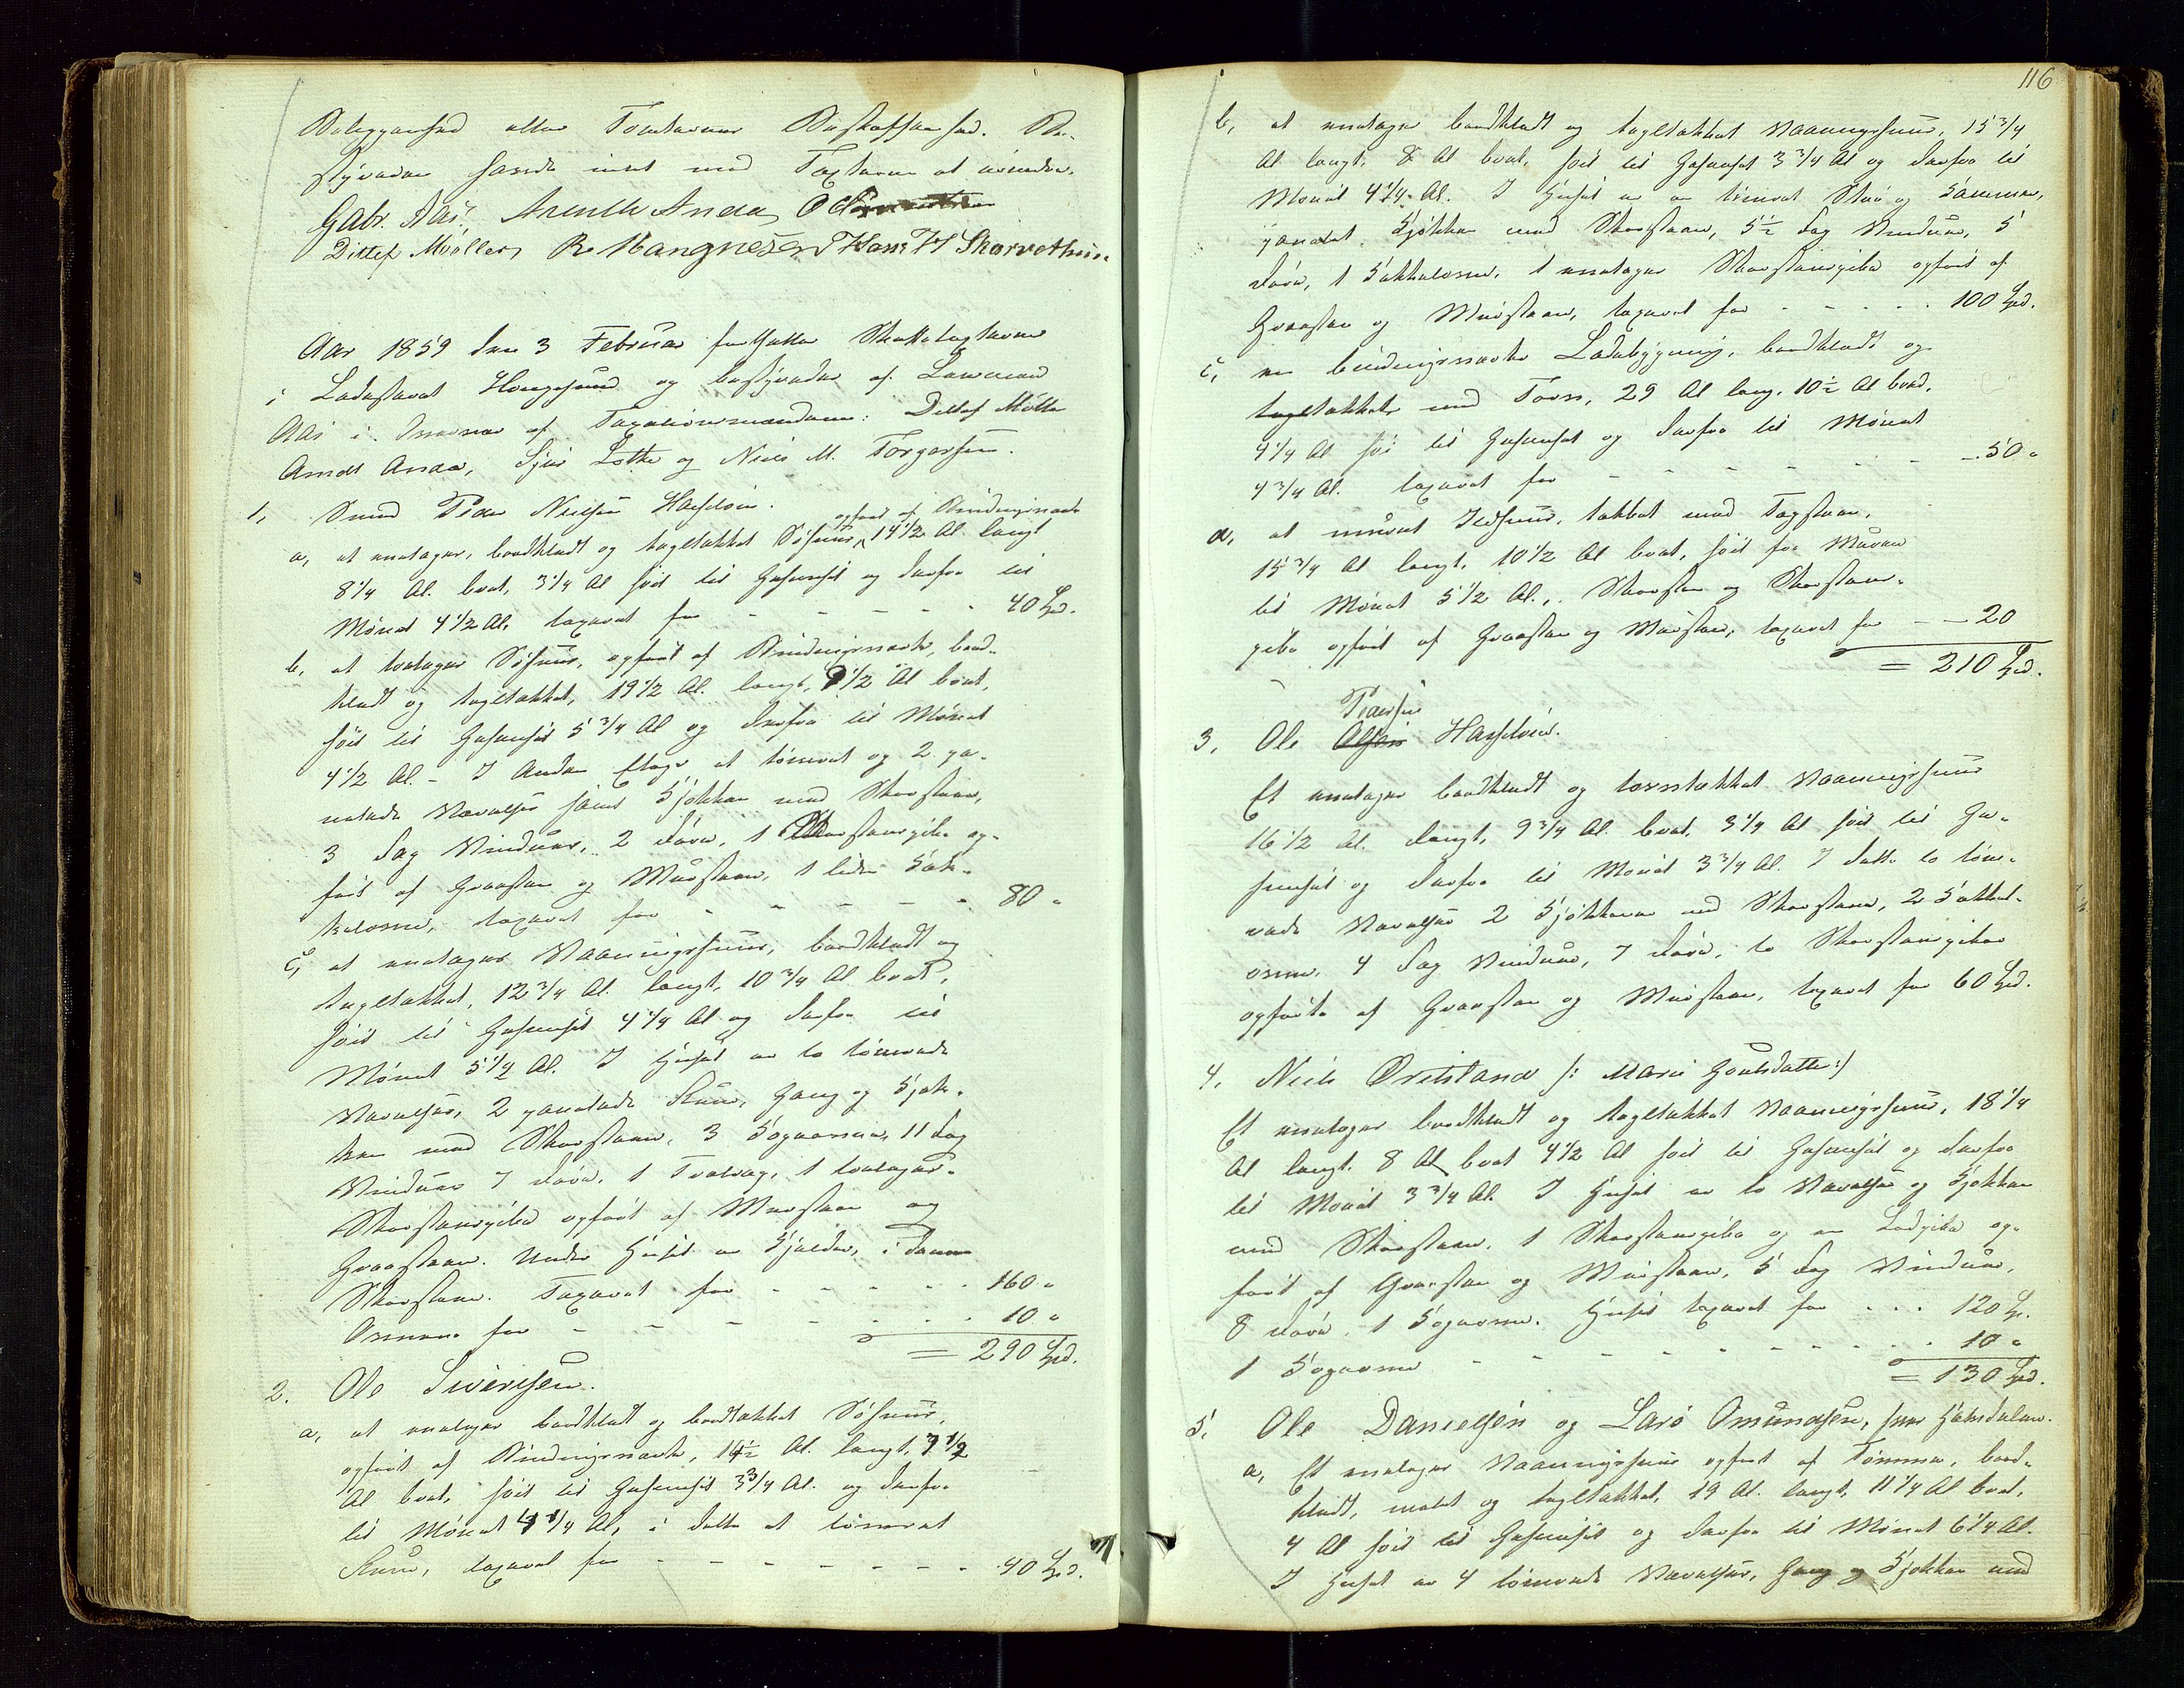 Beliggenhed eller Tomternes Beskaffenhed. Be-
styreren havde intet ved Taxterne at erindre.
Gabr. Aas. Arentk Anda,
Ditlef Møller, B. Mangnesen Hans H Skarvethun.
Aar 1859 den 3 Februar fortsattes
i Ladestedet Hougesund og bestyredes af Lensmand
Aas i Nærvær af Taxationsmændene: Ditlef Møller
Arndt Anda, Sjur Lothe og Niels M. Torgersen.
1, Smed Peder Nielsen Hasseløen.
opført af Bindingsværk
a, et eetages, bordklædt og tagltækket Søhuus, 14 1/2 Al. langt
8 1/4 Al. bret, 3 1/4 Al høit til Gesimset og derfra til
Mønet 4 1/2 Al. taxeret for - - - - - 40 Spd.
b, et toetages Søhuus, opført af Bindingsværk, bord-
klædt og tagltækket, 19 1/2 Al. langt, 9 1/2 Al bret,
høit til Gesimset 5 3/4 Al og derfra til Mønet
4 1/2 Al. - I Anden Etage et tømret og 2 pa-
nelede Værelser samt Kjøkken med Skorsteen,
3 Fag Vinduer, 2 Døre, 1 Skorsteenspibe op-
ført af Graasten og Muursteen, 1 liden Kak-
kelovn, taxeret for - - - - - 80 "
c, et eetages Vaaningshuus, bordklædt og
tagltækket, 12 3/4 Al. langt, 10 3/4 Al bret,
høit til Gesimset 4 1/4 Al og derfra til
Mønet 5 1/2 Al. I Huset er to tømrede
Værelser, 2 panelede Kamre, Gang og Kjøk-
ken med Skorsteen, 3 Kogeovne, 11 Fag
Vinduer 7 Døre, 1 Træsvæg, 1 toetages
Skorsteenspibe opført af Muursteen og
Graasteen. Under Huset er Kjelder, i denne
Skorsteen. Taxeret for - - - - - 160 "
Ovnene for - - - - - 10 "
= 290 Spd.
2. Ole Sivertsen.
a, et eetages bordklædt og bordtækket Søhuus,
opført af Bindingsværk, 14 1/2 Al. langt, 7 1/2
Al bret, høit til Gesimset 3 3/4 Al. og derfra
til Mønet 4 1/4 Al, i dette et tømret
Kammer, taxeret for - - - - - 40 Spd.
116
b, et eetages bordklædt og tagltækket Vaaningshuus, 15 3/4
Al langt, 8 Al bret, høit til Gesimset 3 3/4 Al og derfra til
Mønet 4 1/4 Al. I Huset er en tømret Stue og Kammer,
panelet Kjøkken med Skorsteen, 5 1/2 Fag Vinduer, 5
Døre, 1 Kakkelovn, 1 eetages Skorsteenspibe opført af
Graasten og Muursteen, taxeret for - - - - - 100 Spd.
c, en bindingsværks Ladebygning, bordklædt og
tagltækket med Torv, 29 Al lang, 10 1/2 Al bred,
4 1/4 Al høi til Gesimset og derfra til Mønet
4 3/4 Al. taxeret for - - - - - 50 "
d, et muret Ildhuus, tækket med Tagsteen,
15 3/4 Al langt, 10 1/2 Al bret, høit fra Muren
til Mønet 5 1/2 Al., Skorsten og Skorsteens-
pibe opført af Graasten og Muursten, taxeret for - - 20
= 210 Spd.
Pedersen
3, Ole Olsen Hasseløen.
Et eetages bordklædt og torvtækket Vaaningshuus
16 1/2 Al. langt, 9 3/4 Al. bret, 3 1/4 Al høit til Ge-
simset og derfra til Mønet 3 3/4 Al. I dette to tøm-
rede Værelser 2 Kjøkkener med Skorsteen, 2 Kakkel-
ovne, 4 Fag Vinduer, 7 Døre, to Skorsteenspiber
opførte af Graasten og Muursteen, taxeret for 60 Spd.
4, Niels Øritsland /: Mari Goutsdatter :/
Et eetages bordklædt og tagltækket Vaaningshuus, 18 1/4
Al langt, 8 Al bret 4 1/2 Al høit til Gesimset og derfra
til Mønet 3 3/4 Al. I Huset er to Værelser og Kjøkken
med Skorsteen, 1 Skorsteenspibe og en Lodpibe op-
ført af Graasten og Muursteen, 5 Fag Vinduer,
8 Døre, 1 Kogeovn. Huset taxeret for - - - 120 Sp.
1 Kogeovn - - - - - 10 "
= 130 Spd.
5, Ole Danielsen og Lars Omundsen, hver Halvdelen.
a, Et eetages Vaaningshuus opført af Tømmer, bord-
klædt, malet og tagltækket, 19 Al. langt, 11 1/4 Al bret,
4 Al høit til Gesimset og derfra til Mønet 6 1/4 Al.
I Huset er 4 tømrede Værelser, Gang og Kjøkken med